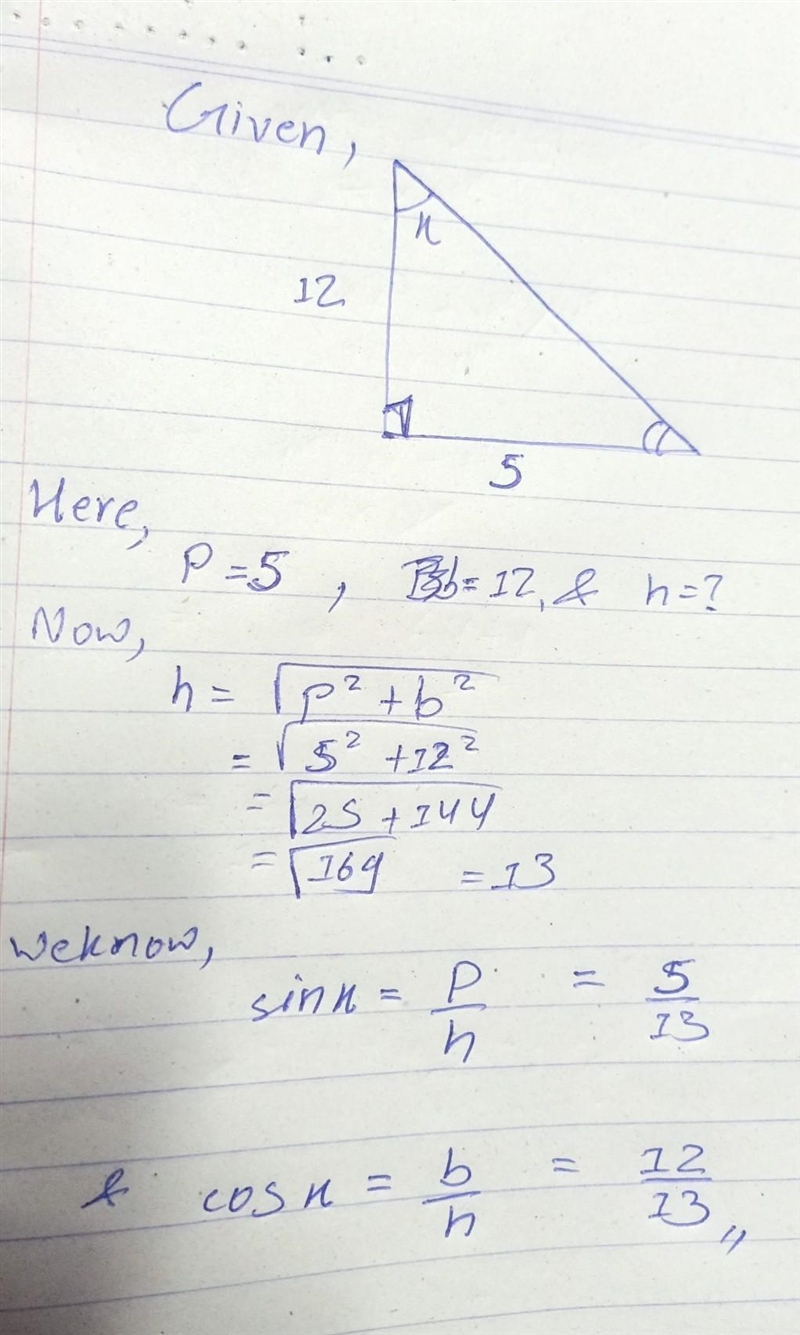 Given,
x
12
5
Here,
P = 5 , b = 12, & h = ?
Now,
h = √(p² + b²)
= √(5² + 12²)
= √(25 + 144)
= √169 = 13
We know,
sin x = P/h = 5/13
& cos x = b/h = 12/13,,